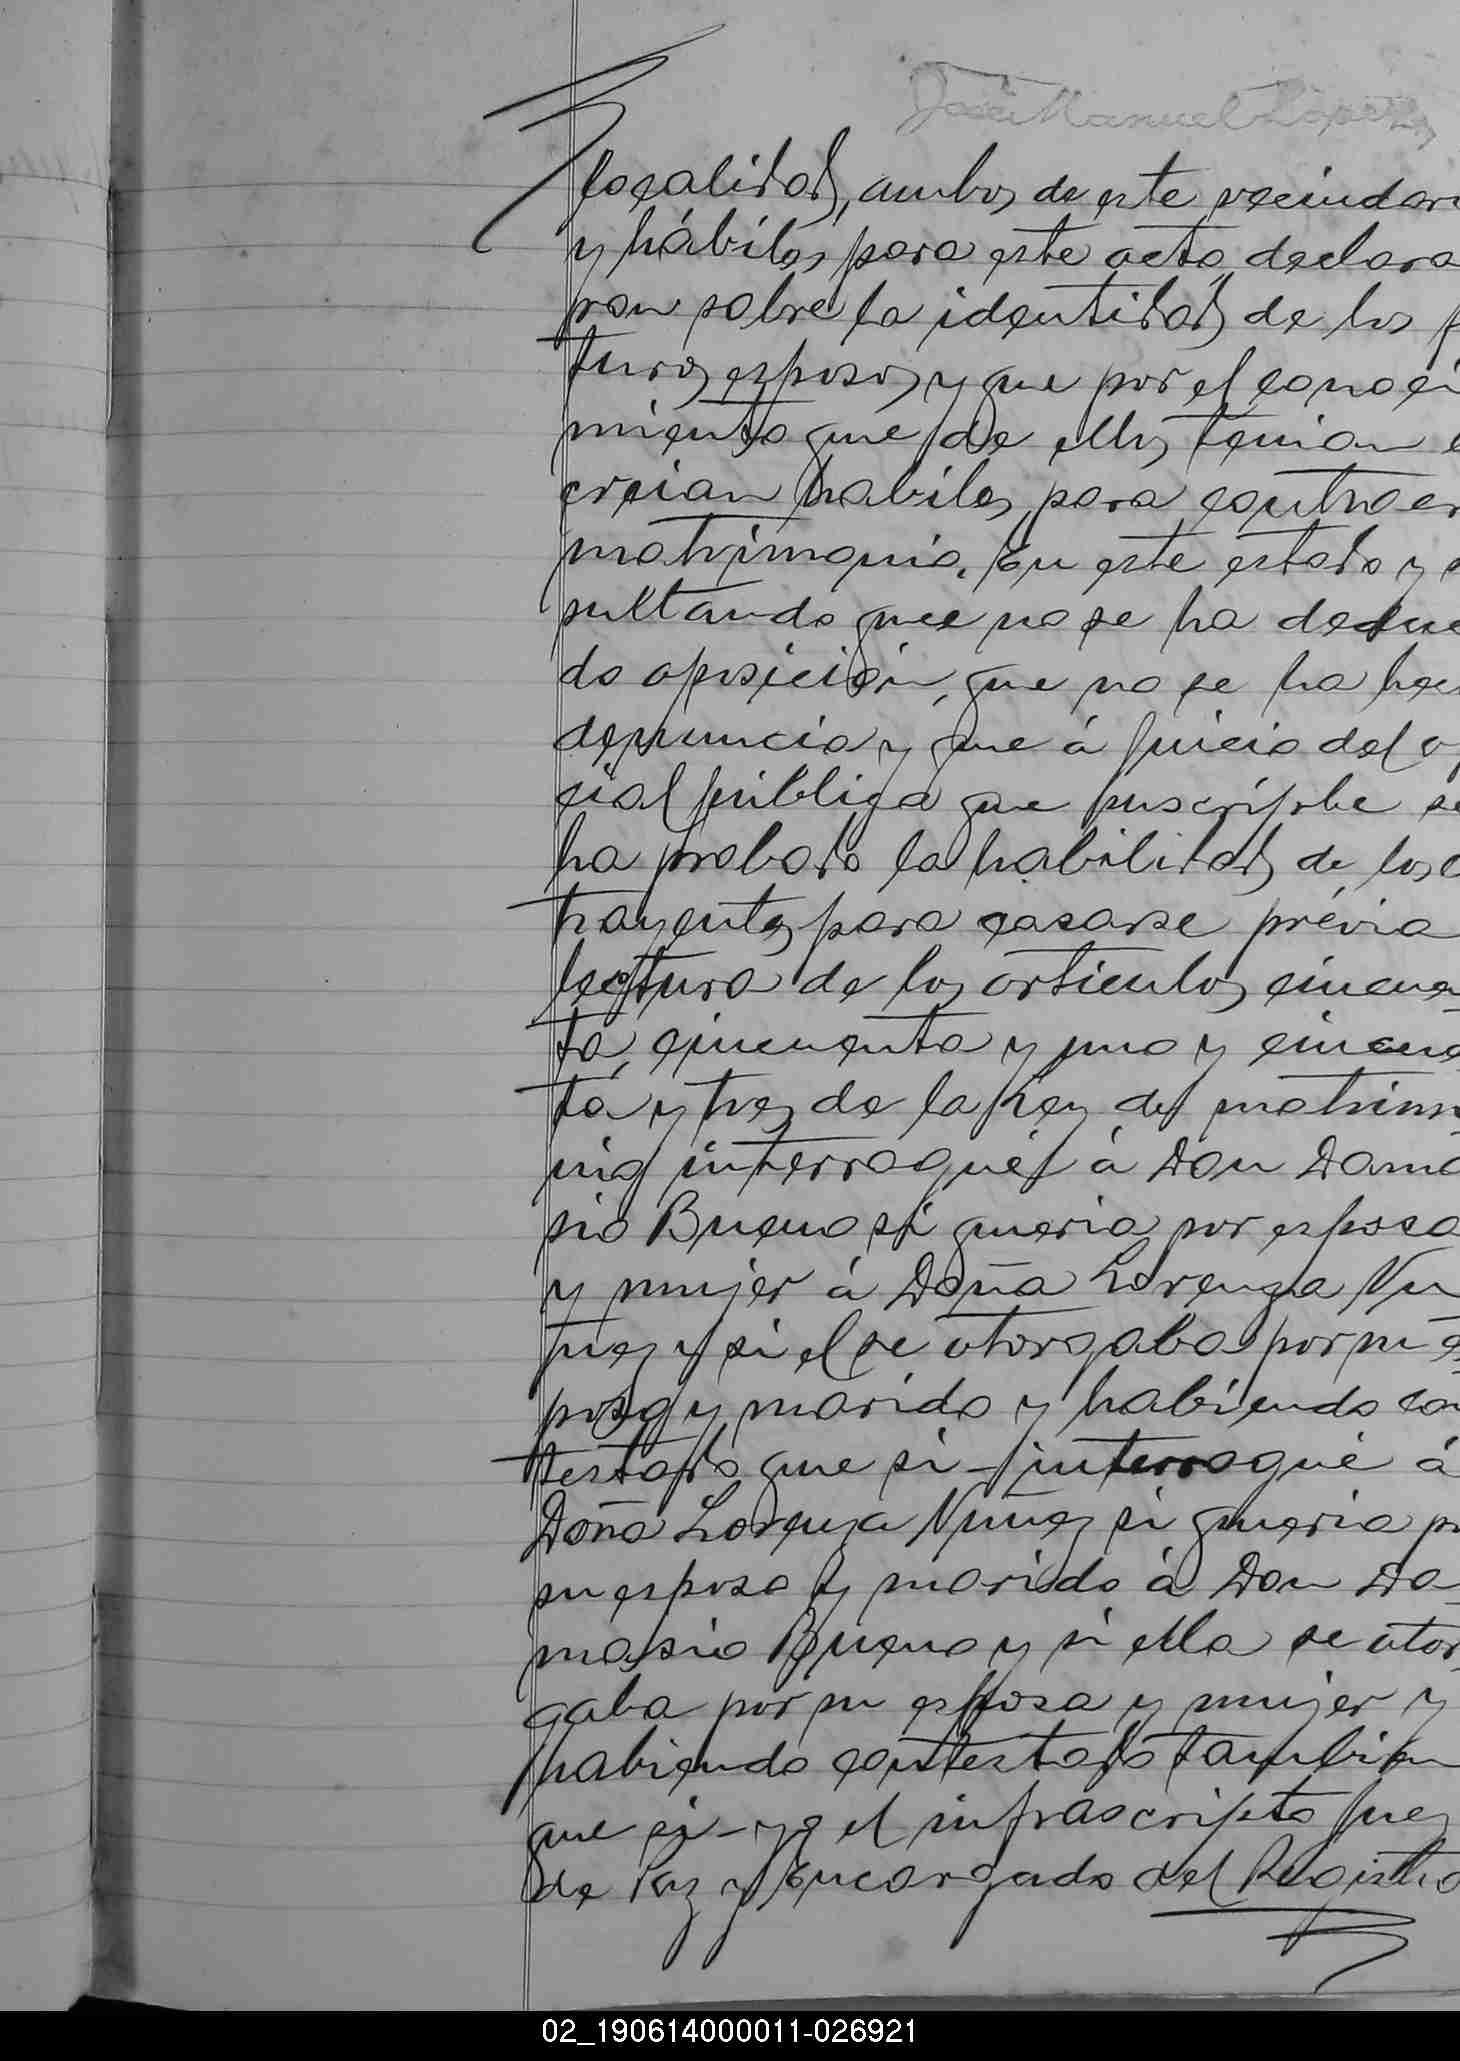 José Manuel López
localidad, ambos de este vecindar
y hábiles para este acto declara
ron sobre la identidad de los f
turos esposos y que por el conoci
miento que de ellos tenian l
creian habiles para contraer
matrimonio. En este estado y r
sultando que no se ha deduc
do oposición, que no se ha hec
denuncia y que á juicio del of
cial públiga que suscripbe se
ha probado la habilidad de los c
trayentes para casarse prévia
lectura de los articulos cincuen
ta, cincuenta y uno y cincuen
ta y tres de la Ley de matrimo
nio interrogué á Don Dama
sio Bueno si queria por esposa
y mujer á Doña Lorenza Nu
ñez y si el se otorgaba por su es
poso y marido y habiendo con
testado que si - interrogué á
Doña Lorenza Nuñez si queria po
su esposo y marido á Don Da
masio Bueno y si ella se otor
gaba por su esposa y mujer y
habiendo contestado tambien
que si - yo el infrascripto Juez
de Paz y Encargado del Registro
02_190614000011-026921